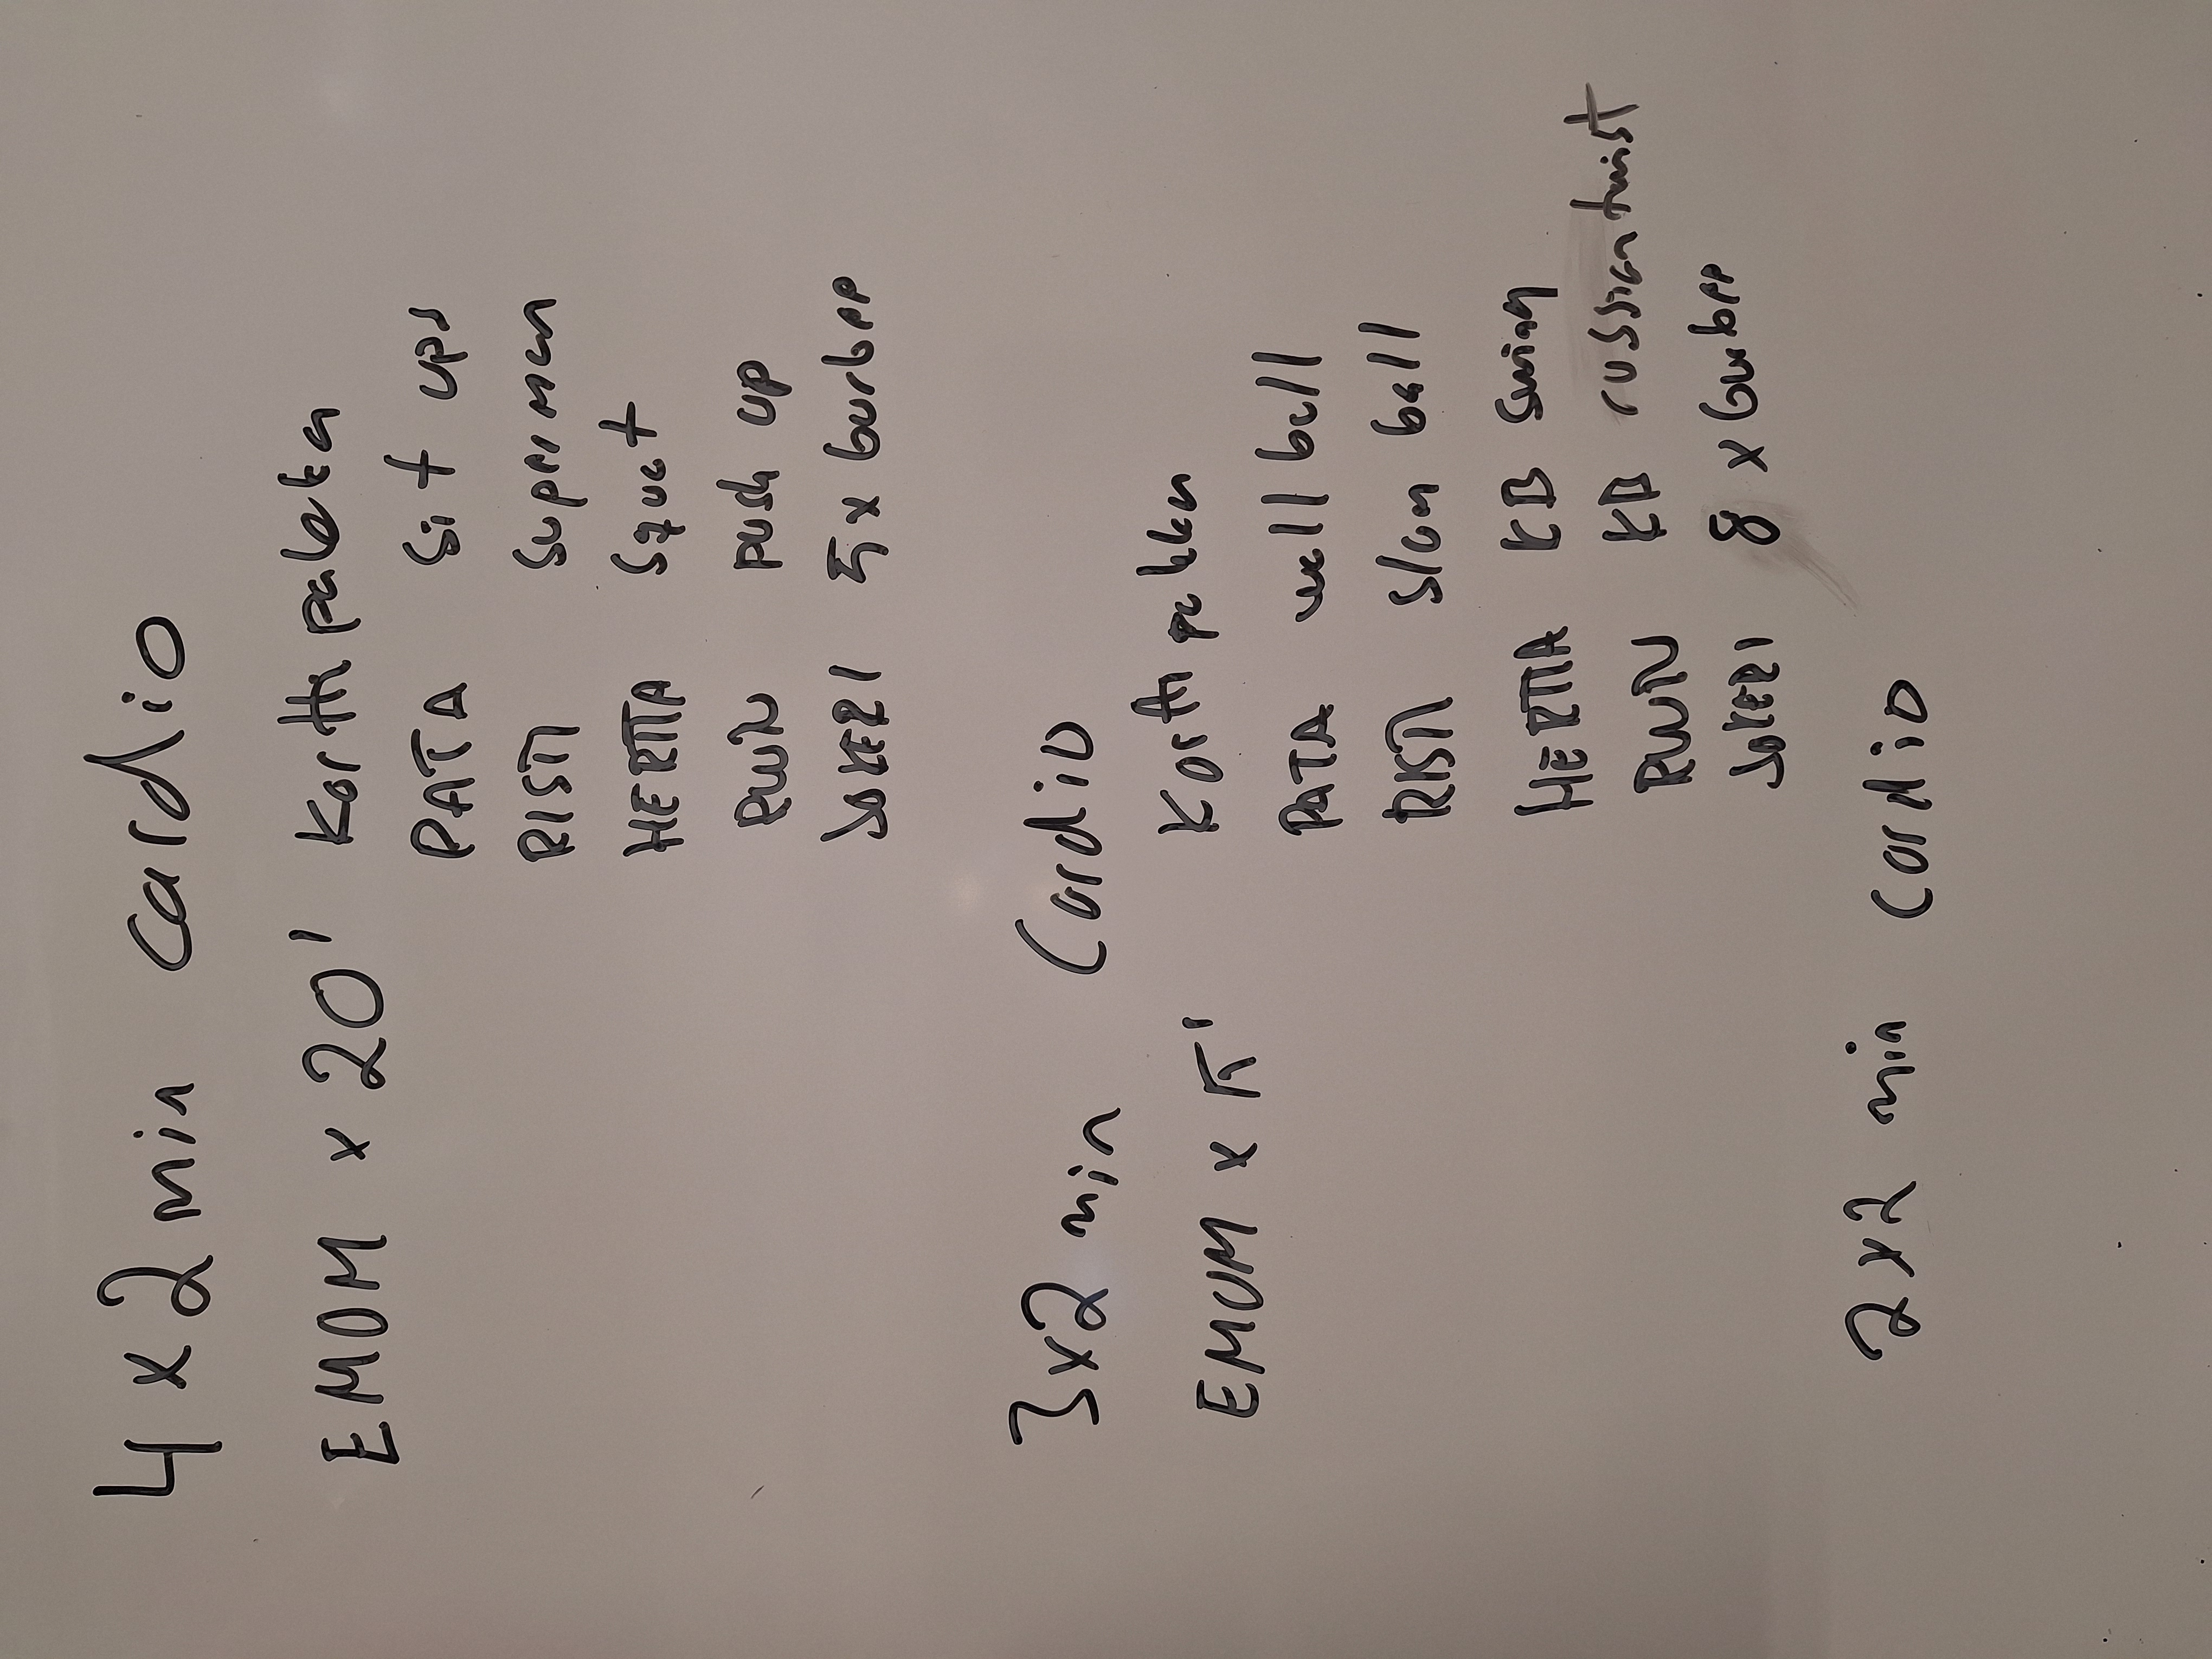 4 x 2 min cardio
EMOM x 20' Kortti pakka
PATA sit ups
RISTI superman
HERTTA squat
RUUTU push up
JOKERI 5 x burpee
3x2 min cardio
EMOM x 15' Kortti pakka
PATA wall ball
RISTI slam ball
HERTTA KB swing
RUUTU KB russian twist
JOKERI 8 x burpee
2x2 min cardio